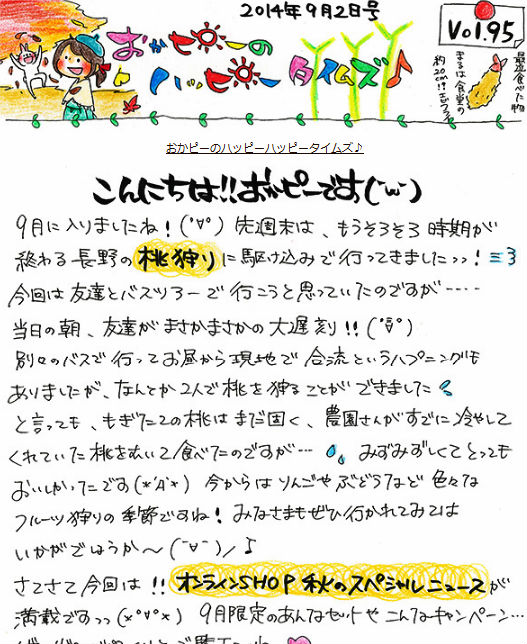 2014年9月2日号
おかピーの
ハッピータイムズ♪
Vol.95
最近食べた物
まるは食堂の
約20cm!?エビフライ
おかピーのハッピーハッピータイムズ♪
こんにちは!!おかピーです(˘ω˘)
9月に入りましたね!(°∀°) 先週末は、もうそろそろ時期が
終わる長野の桃狩りに駆け込みで行ってきましたっっ!
今回は友達とバスツアーで行こうと思っていたのですが……
当日の朝、友達がまさかまさかの大遅刻!!(°∀°)
別々のバスで行ってお昼から現地で合流というハプニングも
ありましたが、なんとか2人で桃を狩ることができました
と言っても、もぎたての桃はまだ固く、農園さんがすでに冷やして
くれていた桃を剥いて食べたのですが… みずみずしくてとっても
おいしかったです(*´Д`*) 今からはりんごやぶどうなど色々な
フルーツ狩りの季節ですね! みなさまもぜひ行かれてみては
いかがでしょうか〜(ˉ∀ˉ)/♪
さてさて今回は!!オンラインSHOP 秋のスペシャルニュースが
満載ですっっ(*°∀°*) 9月限定のあんなセットやこんなキャンペーン…